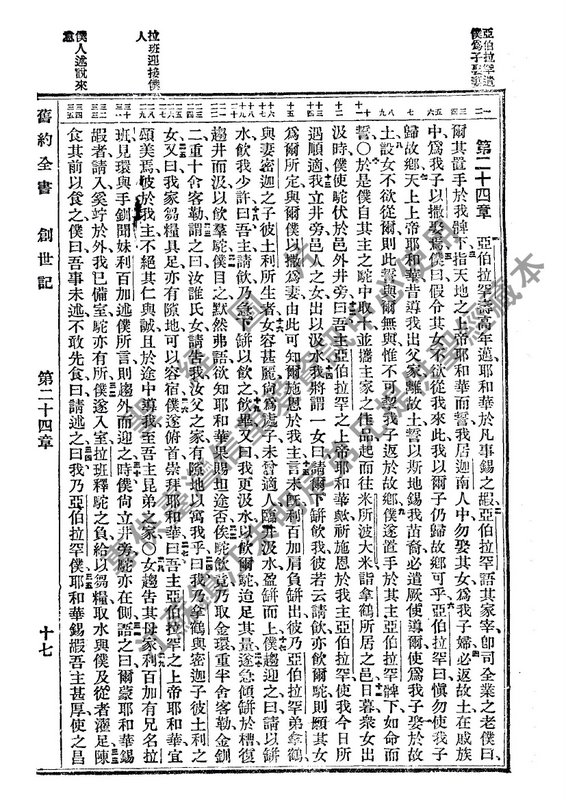 亞伯拉罕遣
僕為子擇妻
拉班迎接僕
人
僕人述說來
意
第二十四章 亞伯拉罕壽高年邁耶和華於凡事錫之嘏亞伯拉罕語其家宰卽司全業之老僕曰
爾其置手於我髀下指天地之上帝耶和華而誓我居迦南人中勿娶其女為我子婦必返故土在戚族
中為我子以撒娶焉僕曰假令其女不欲從我來此我以爾子仍歸故鄉可乎亞伯拉罕曰慎勿使我子
歸故鄉天上上帝耶和華昔導我出父家離故土誓以斯地錫我苗裔必遣厥使導爾使為我子娶於故
土設女不欲從爾則此誓與爾無與惟不可攜我子返於故鄉僕遂置手於其主亞伯拉罕髀下如命而
誓○於是僕自其主之駝中取十並攜主家之佳品起而往米所波大米詣拿鶴所居之邑日暮衆女出
汲時僕使駝伏於邑外井旁曰吾主亞伯拉罕之上帝耶和華歟祈施恩於我主亞伯拉罕使我今日所
遇順適我立井旁邑人之女出以汲水我將謂一女曰請爾下缾飲我彼若云請飲亦飲爾駝則願其女
為爾所定與爾僕以撒為妻由此可知爾施恩於我主言未旣利百加肩負缾出彼乃亞伯拉罕弟拿鶴
與妻密迦之子彼土利所生者女容甚麗尚為處子未曾適人臨井汲水盈缾而上僕趨迎之曰請以缾
水飲我少許曰吾主請飲乃急下缾以飲之飲畢又曰我更汲水以飲爾駝迨足其量遂急傾缾於槽復
趨井而汲以飲羣駝僕目之默然弗語欲知耶和華果賜坦途否俟駝飲竟乃取金環重半舍客勒金釧
二重十舍客勒謂之曰汝誰氏女請告我汝父之家有隙地以寓我乎曰我乃拿鶴與密迦子彼土利之
女又曰我家芻糧具足亦有隙地可以容宿僕遂俯首崇拜耶和華曰吾主亞伯拉罕之上帝耶和華宜
頌美焉彼於我主不絕其仁與誠且於途中導我至吾主昆弟之家○女趨告其母家利百加有兄名拉
班見環與手釧聞妹利百加述僕所言則趨外而迎之時僕尚立井旁駝亦在側語之曰爾蒙耶和華錫
嘏者請入奚竚於外我已備室駝亦有所僕遂入室拉班釋駝之負給以芻糧取水與僕及從者濯足陳
食其前以食之僕曰吾事未述不敢先食曰請述之曰我乃亞伯拉罕僕耶和華錫嘏吾主甚厚使之昌
舊約全書 創世記 第二十四章 十七